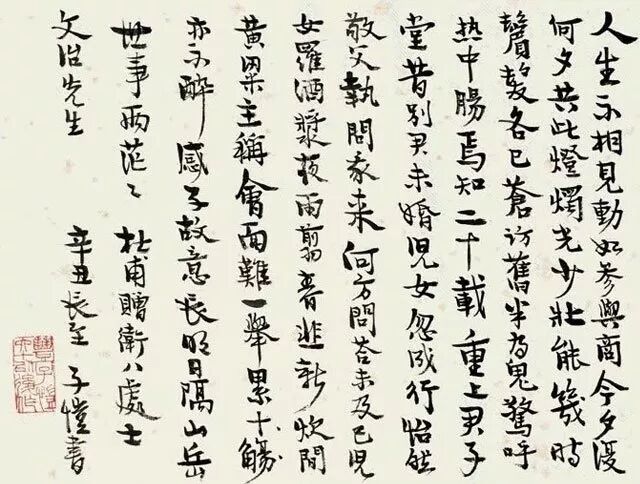 人生不相見動如参與商今夕復
何夕共此燈燭光少壯能幾時
鬢髮各已蒼訪舊半為鬼驚呼
热中腸焉知二十載重上君子
堂昔別君未婚児女忽成行怡然
敬父執問我来何方問荅未及已児
女羅酒漿夜雨翦春韭新炊間
黄粱主稱會面難一舉累十觴
亦不醉感子故意長明日隔山岳
世事两茫〻 杜甫贈衛八處士
文治先生 辛丑長至 子愷書